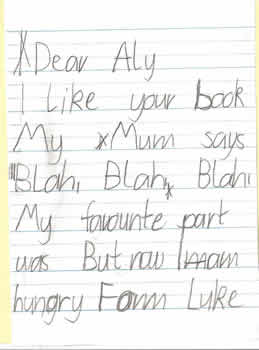 Dear Aly
I Like your book
My Mum says
Blah, Blah, Blah,
My favounte part
was But now I am
hungry Form Luke